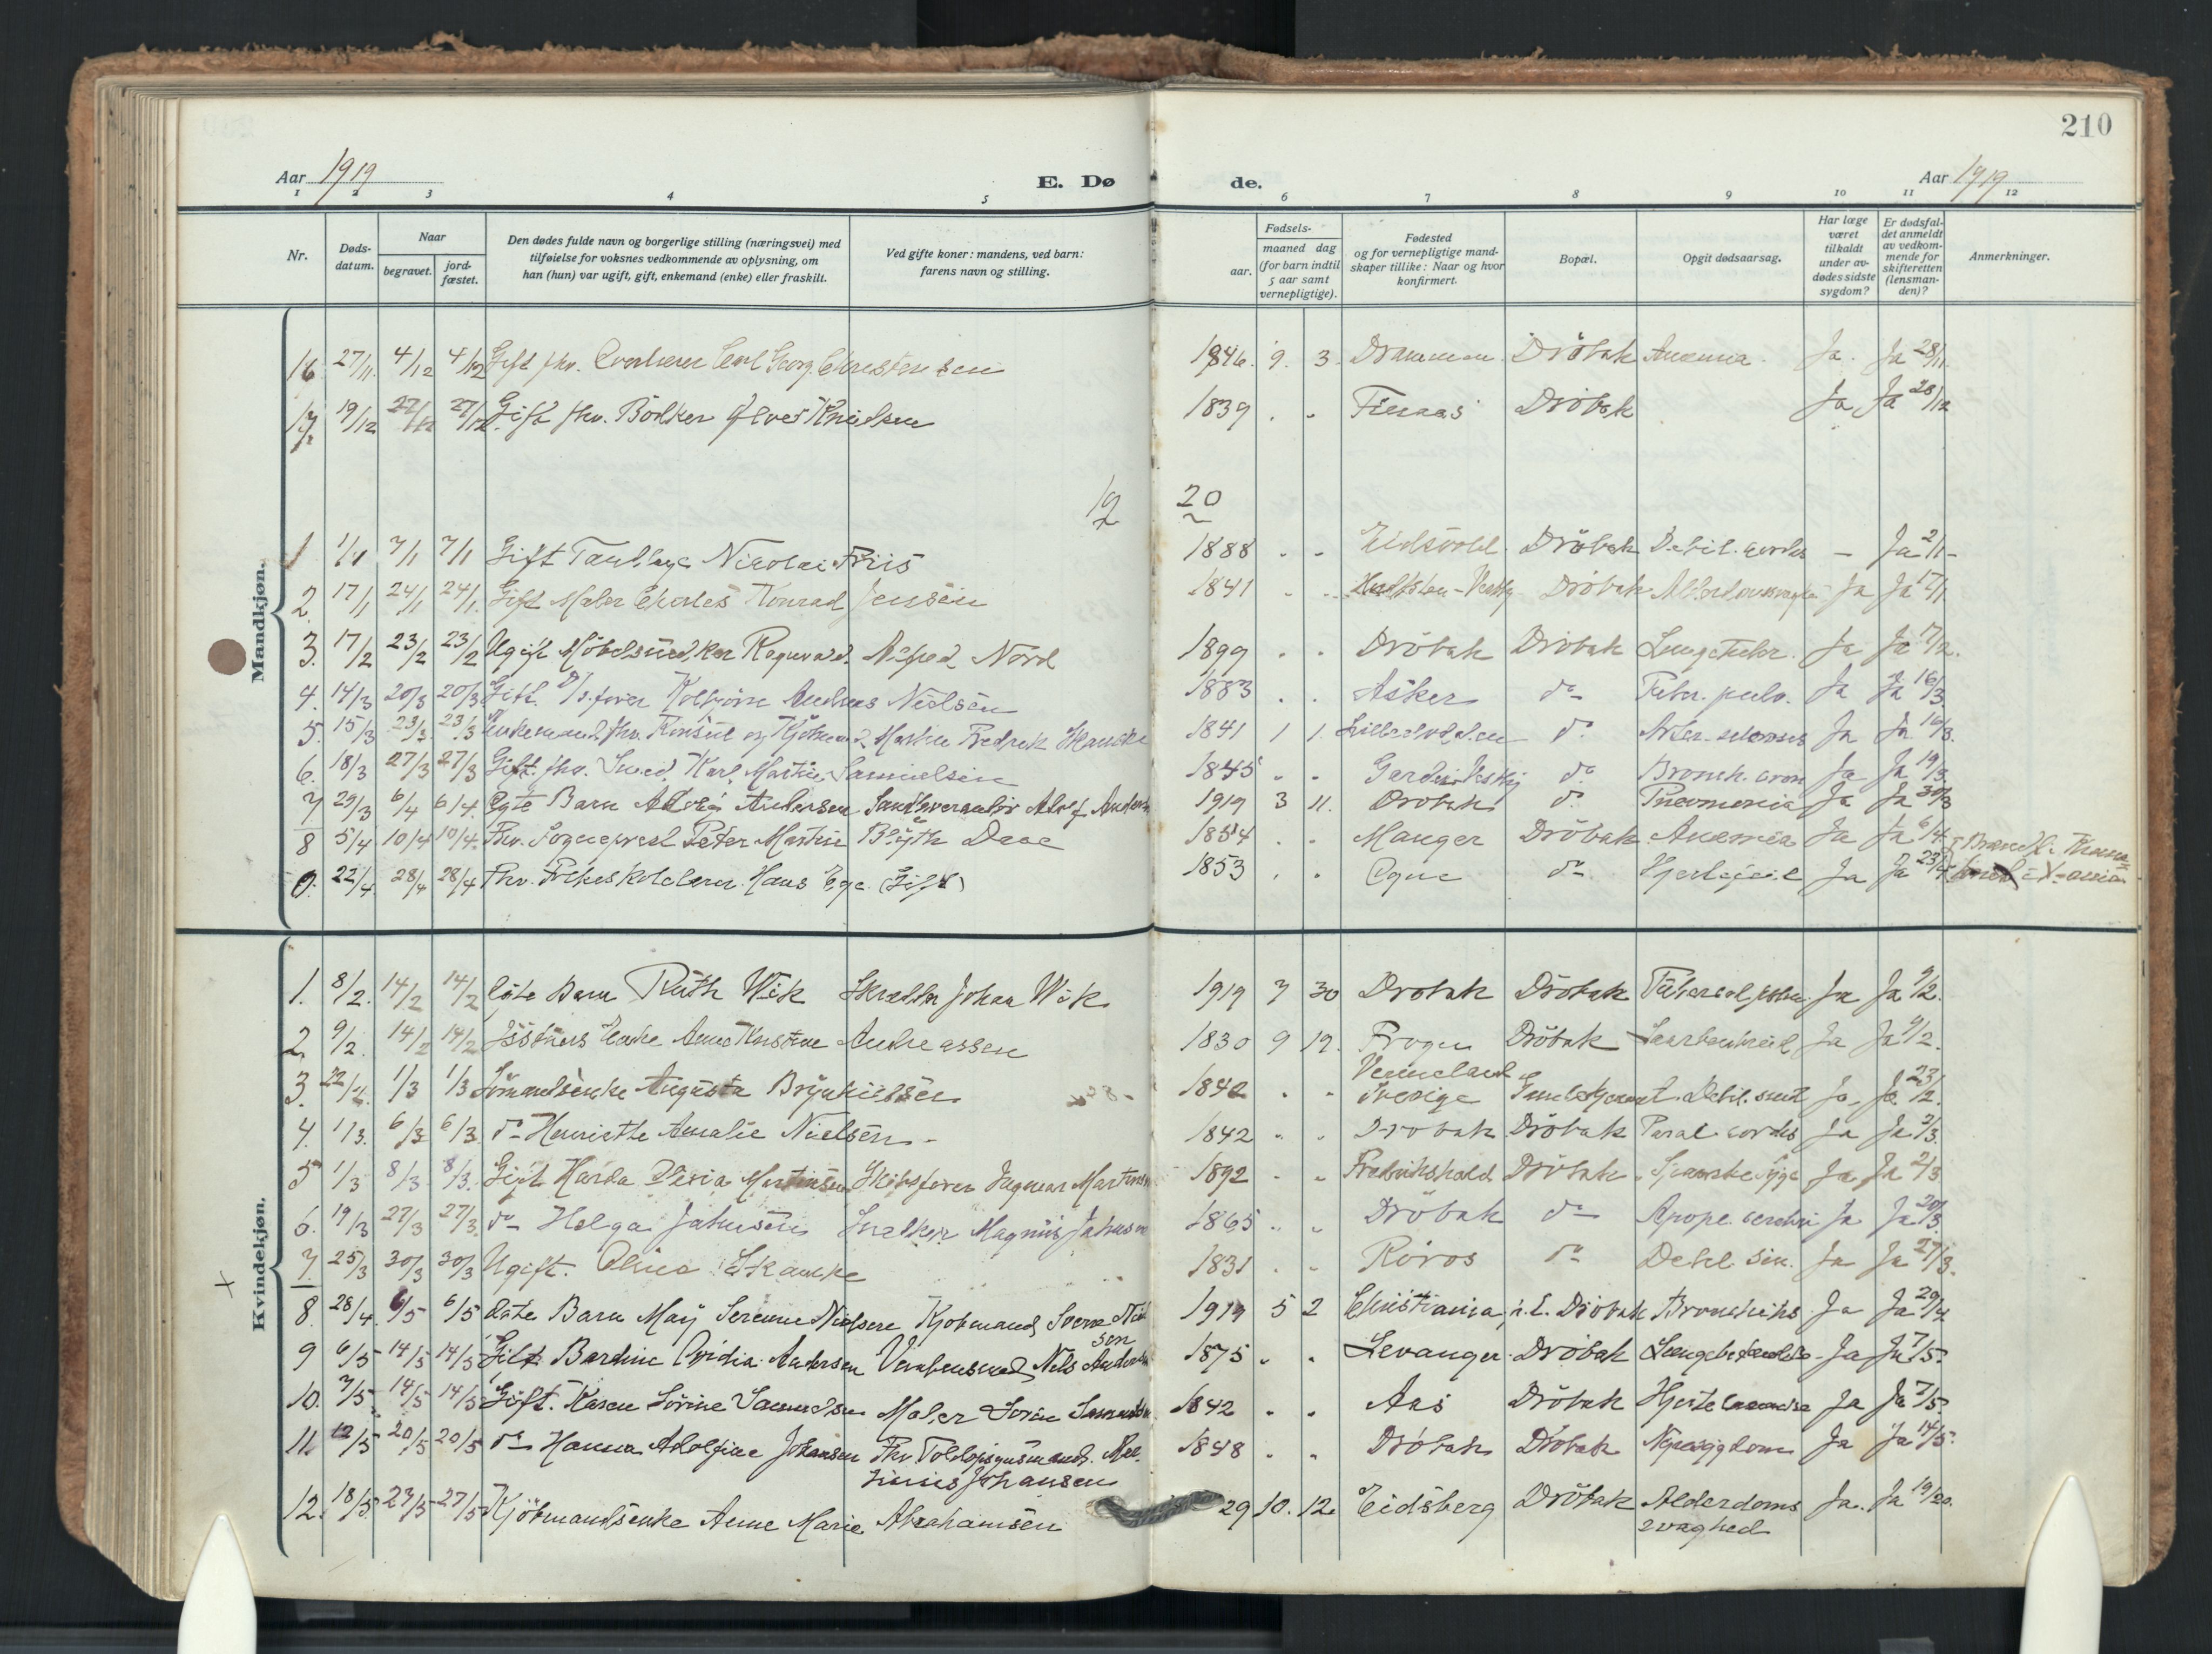 210
Aar 1919 E. Dø de. Aar 1919
1 2 3 4 5 6 7 8 9 10 11 12
Nr. Døds-datum. Naar begravet. jord-fæstet. Den dødes fulde navn og borgerlige stilling (næringsvei) med tilføielse for voksnes vedkommende av oplysning, om han (hun) var ugift, gift, enkemand (enke) eller fraskilt. Ved gifte koner: mandens, ved barn: farens navn og stilling. Fødsels- aar. maaned dag (for barn indtil 5 aar samt vernepligtige). Fødested og for vernepligtige mandskaper tillike: Naar og hvor konfirmert. Bopæl. Opgit dødsaarsag. Har læge været tilkaldt under avdødes sidste sygdom? Er dødsfaldet anmeldt av vedkommende for skifteretten (lensmanden)? Anmerkninger.
Mandkjøn.
16 27/11 4/12 4/12 Gift fhv. Carl Georg Christensen 1846. 9. 3. Drammen Dröbak Anæmia. Ja. Ja 28/11
17. 19/12 27/12 27/12 Gift fhv. Bödker Knudsen 1839 . " Dröbak Ja Ja 28/12
19 20
1 1/1 7/1 7/1 Gift Tandlæge Nicolai Friis 1888 - - Eidsvold Dröbak Debil. cordis - Ja 2/1 -
2. 17/1 24/1 24/1. Gift Maler Charles Konrad Jensen 1841 - - Dröbak Ja Ja 17/1
3. 17/2 23/2 23/2 Ugift Möbelsnedker Ragnvald Alfred Nord 1899 . . Dröbak Dröbak Lungetuber. Ja Ja 17/2.
4. 14/3 20/3 20/3 Gift. D/s. förer Kolbjörn Andreas Nielsen 1883 . . Asker do Tuber. pulm. Ja Ja 16/3
5. 15/3 23/3 23/3 Enkemand fhv. Konsul og Kjöbmand Martin Fredrik Skancke 1841 1 1. do Ja Ja 16/3.
6. 18/3 27/3 27/3 Gift. fhv. Smed. Karl Martin Samuelsen 1845 " " Garder Vestby do Bronch. cron Ja Ja 19/3
7 29/3 6/4 6/4. Ægte Barn Andersen Adolf Andersen 1919 3 11. Dröbak do Pneumonia Ja Ja 30/3
8 5/4 10/4 10/4. Fhv. Sogneprest Peter Martin Blyth Daae 1854 . . Manger Dröbak Anæmia Ja Ja 6/4
9. 22/4 28/4 28/4 Fhv. Folkeskolelærer Hans Ege (Gift) 1853 . . Ogne do Hjertefeil Ja Ja 23/4
Kvindekjøn.
1. 8/2. 14/2 14/2 Ægte Barn Ruth Wik Skrædder Johan Wik 1919 7 30 Drobak Dröbak Ja Ja 9/2.
2. 9/2. 14/2 14/2 Enke Anne Kirstine Andreassen 1830 9 19. Frogn Dröbak Ja Ja 9/2.
3. 22/2. 1/3 1/3 Sömandsenke Augusta Brynhildsen 1842 . " Vermeland Sverige Debil. senil Ja. Ja 23/2.
4. 1/3. 6/3 6/3. do Henriette Amalie Nielsen - 1842 " . Drobak Dröbak Paral. cordis Ja Ja 3/3.
5 1/3 8/3 8/3. Gift Harda Martinsen Skibsförer Ingvar Martinsen 1892 - " Fredrikshald Dröbak Spanske Syge Ja Ja 2/3
6. 19/3 27/3 27/3. do Helga Jahnsen Snekker Magnus Jahnsen 1865 " " Dröbak do Apople. cerebri Ja Ja 20/3.
7. 25/3 30/3 30/3 Ugift. Skancke 1831 . " Röros do Debil. sen. Ja Ja 27/3.
8. 28/4. 6/5 6/5 Ægte Barn May Serenne Nielsen Kjobmand Sverre Nielsen 1919 5 2 Christiania, Dröbak Bronchitis Ja Ja 29/4
9 6/5 14/5 14/5 Gift Bardine Ovidia Andersen Nils Andersen 1875 " . Levanger Dröbak Ja Ja 7/5.
10. 7/5. 14/5 14/5 Gift. Karen Sörine Samuelsen Maler Sorin Samuelsen 1842 . . Aas Dröbak Ja Ja 7/5.
11 12/5 20/5 20/5 do Hanna Adolfine Johansen Fhv. Toldopsynsmand Johansen 1848 . . Dröbak Dröbak Nyresygdom Ja Ja 14/5.
12. 18/5. 27/5 27/5 Kjöbmandsenke Anne Marie Abrahamsen 29 10. 12. Eidsberg Dröbak Alderdoms Ja. Ja 19/20.
svaghed